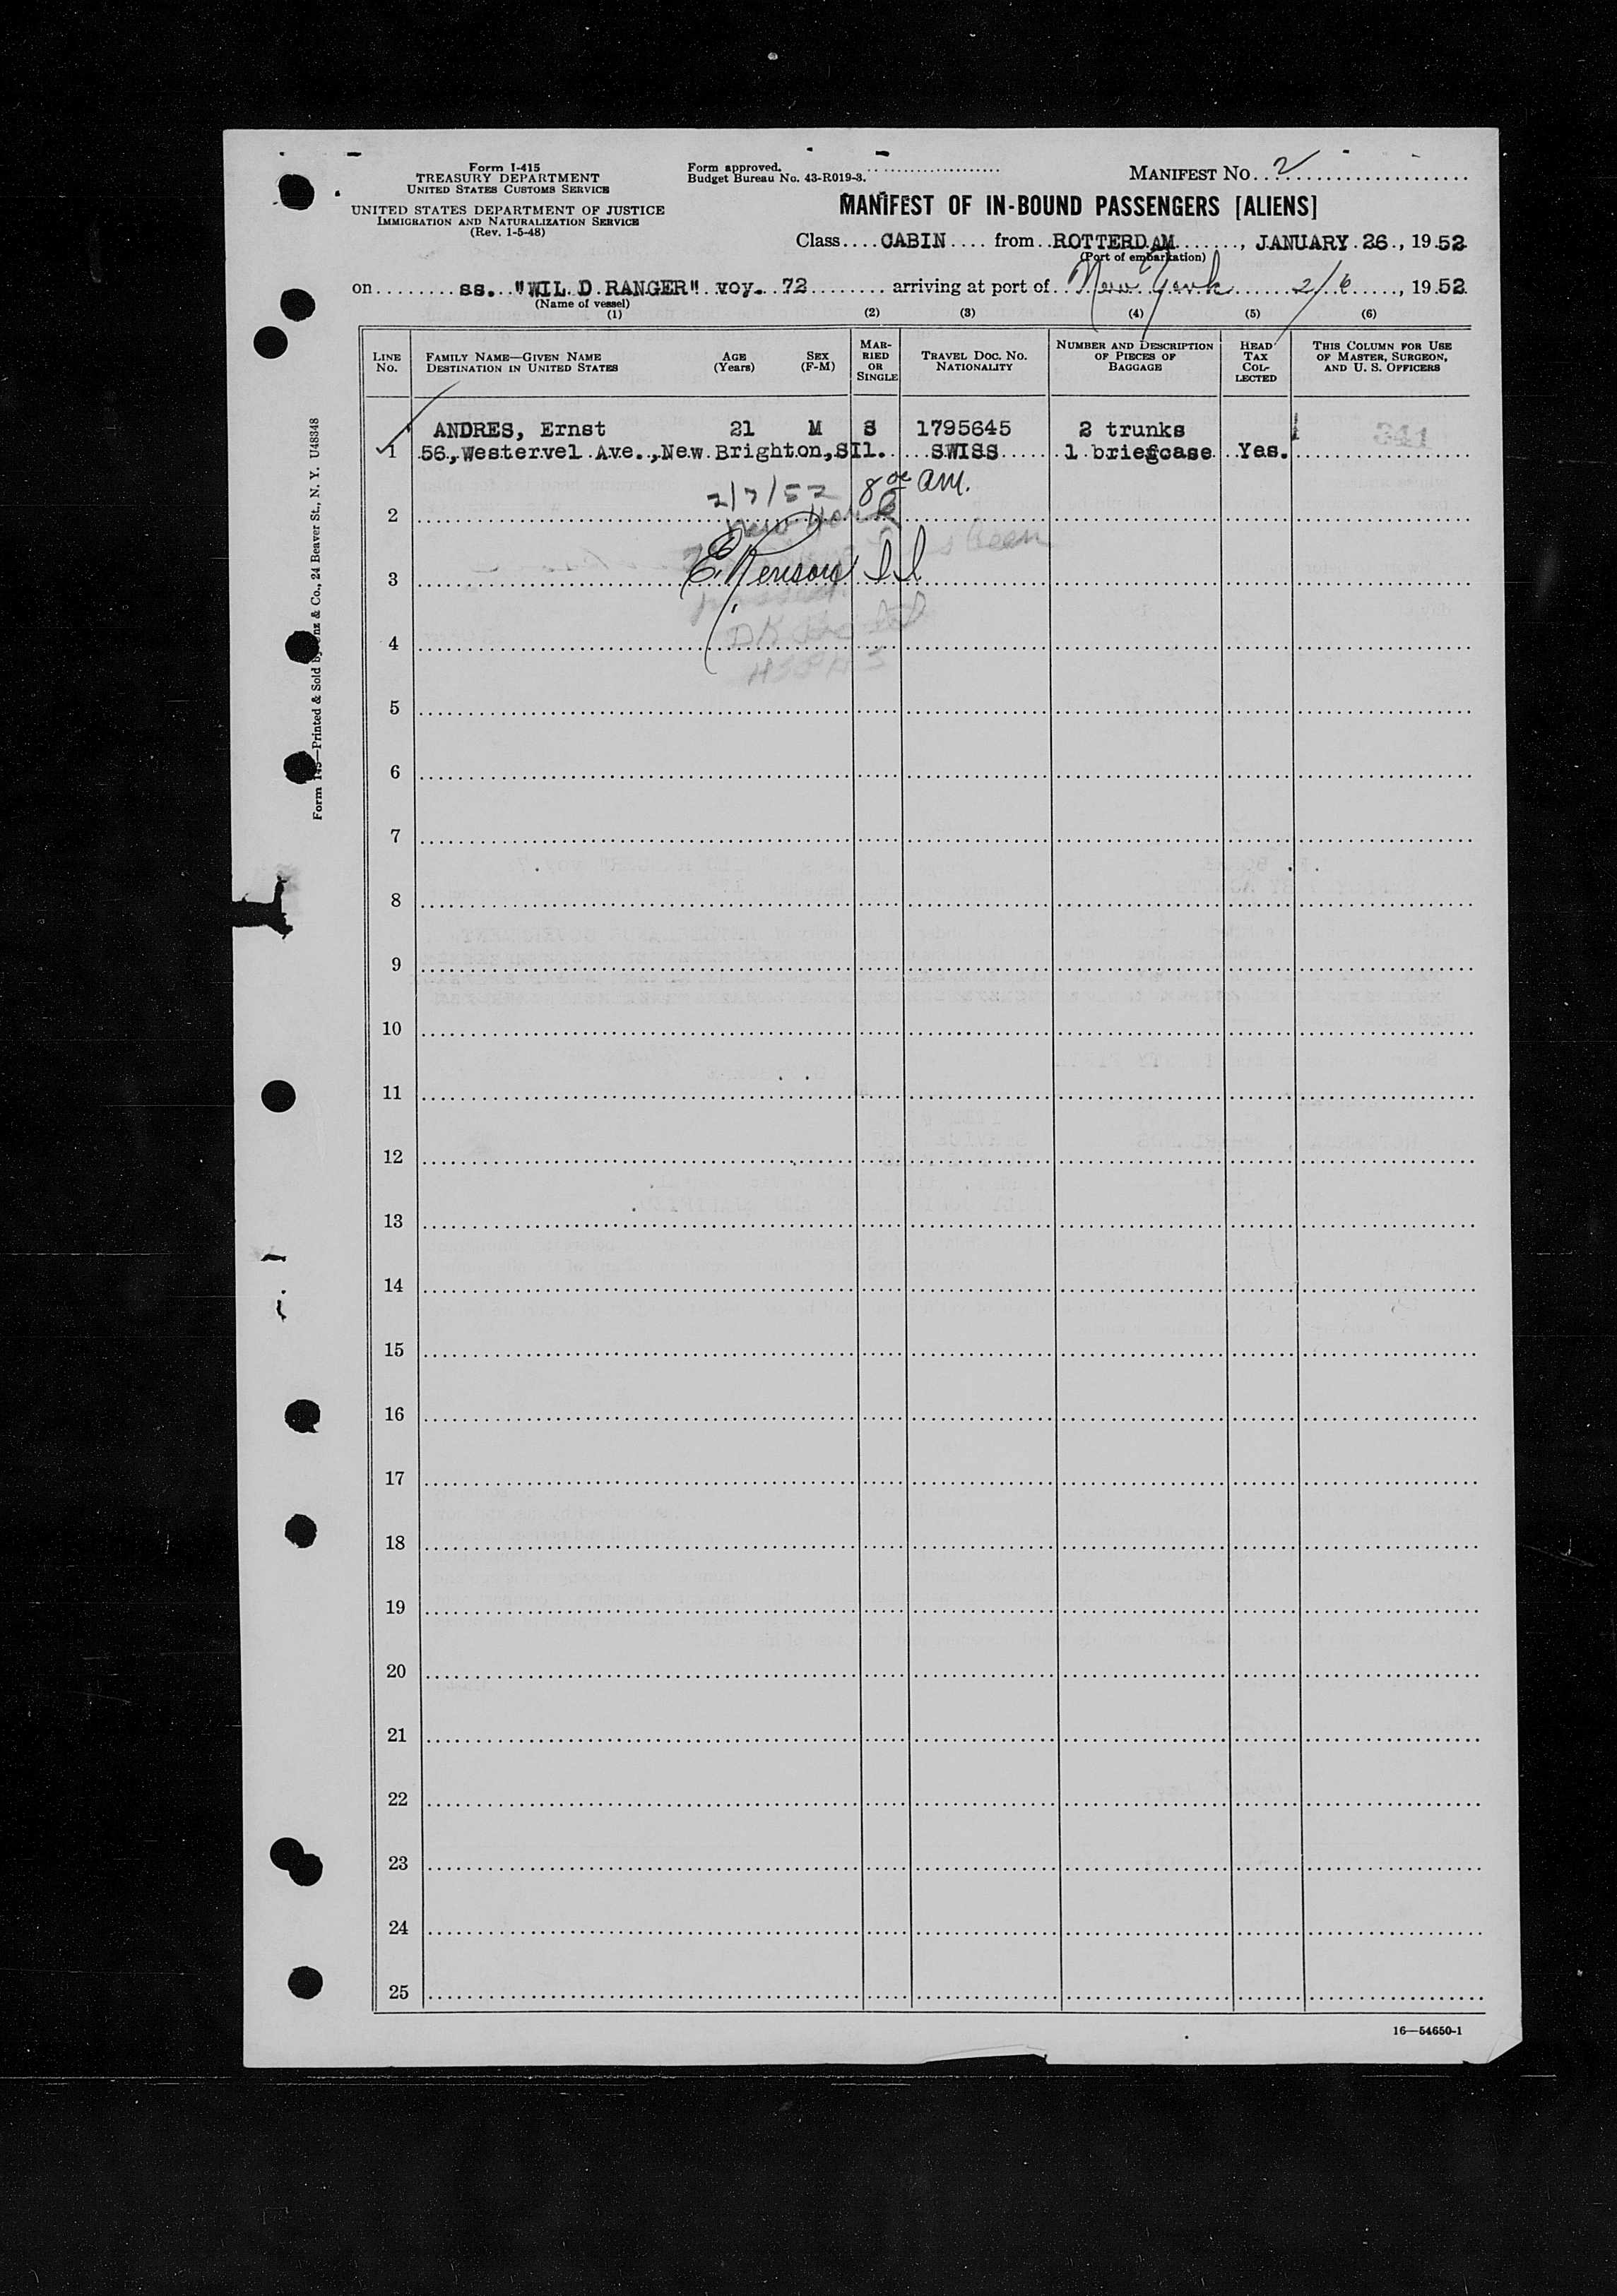 Form I-415
TREASURY DEPARTMENT
UNITED STATES CUSTOMS SERVICE
UNITED STATES DEPARTMENT OF JUSTICE
IMMIGRATION AND NATURALIZATION SERVICE
(Rev. 1-5-48)
Form approved.
Budget Bureau No. 43-R019-3.
MANIFEST NO. 2
MANIFEST OF IN-BOUND PASSENGERS [ALIENS]
Class CABIN from ROTTERDAM, JANUARY 26, 1952
(Port of embarkation)
on ss. "WILD RANGER" voy. 72 arriving at port of New York 2/6, 1952
(Name of vessel)
(1) (2) (3) (4) (5) (6)
LINE NO.
FAMILY NAME—GIVEN NAME
DESTINATION IN UNITED STATES
AGE (Years)
SEX (F-M)
MARRIED OR SINGLE
TRAVEL DOC. NO.
NATIONALITY
NUMBER AND DESCRIPTION
OF PIECES OF
BAGGAGE
HEAD
TAX
COL-
LECTED
THIS COLUMN FOR USE
OF MASTER, SURGEON,
AND U. S. OFFICERS
ANDRES, Ernst 21 M S 1795645 2 trunks 341
1 56, Westervel Ave., New Brighton, SIl. SWISS 1 briefcase Yes.
2/7/52 8 am.
2
3
4
5
6
7
8
9
10
11
12
13
14
15
16
17
18
19
20
21
22
23
24
25
16—54650-1
Form 145—Printed & Sold by & Co., 24 Beaver St., N. Y. U48348